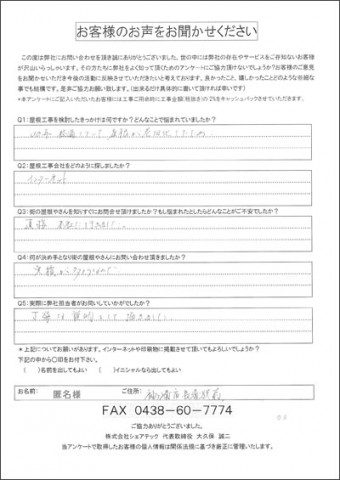 お客様のお声をお聞かせください
この度は弊社にお問い合わせを頂き誠にありがとうございます。世の中には弊社の存在やサービスをご存知ないお客様
が沢山いらっしゃいます。その方たちに弊社をよく知って頂くためのアンケートにご協力頂けないでしょうか?お客様のご意見
をお聞かせいただき今後の活動に反映させていただきたいと考えております。良かったこと、嬉しかったことどのような些細な
事でも結構です。是非ご協力お願い致します。(出来るだけ具体的に書いて頂ければ幸いです)
*本アンケートにご記入いただいたお客様には工事ご用命時に工事金額(税抜き)の2%をキャッシュバックさせていただきます。
Q1:屋根工事を検討したきっかけは何ですか?どんなことで悩まれていましたか?
Q2:屋根工事会社をどのように探しましたか?
インターネット
Q3:街の屋根やさんを知りすぐにお問合せ頂けましたか?もし悩まれたとしたらどんなことがご不安でしたか?
Q4:何が決め手となり街の屋根やさんにお問い合わせ頂きましたか?
実績がありそうなので
Q5:実際に弊社担当者がお伺いしていかがでしたか?
丁寧に
頂きました。
*上記についてお願いがあります。インターネットや印刷物に掲載させて頂いてもよろしいでしょうか?
下記の中から〇印をお付下さい。
( )名前を出してもよい ( )イニシャルなら出してもよい
お名前: 匿名様 ご住所:
FAX 0438-60-7774
ご協力ありがとうございました。
株式会社シェアテック 代表取締役 大久保 誠二
当アンケートで取得したお客様の個人情報は関係法規に基づき厳正に管理いたします。